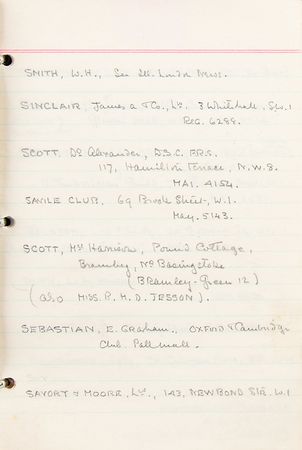 SMITH, W.H., See Ill. London News.
SINCLAIR, James A & Co., Ld. 3 Whitehall, S.W.1
REG. 6288.
SCOTT, Dr Alexander, D.SC. F.R.S.
117, Hamilton Terrace, N.W.8
MAI. 4154.
SAVILE CLUB, 69 Brook Street, W.1.
May. 5143.
SCOTT, Mrs Harrison, Pound Cottage,
Bramley, Nr Basingstoke
(BRAMLEY-Green 12)
(also MISS. R. M. D. JESSON).
SEBASTIAN, E. Graham., OXFORD & Cambridge
Club. Pall mall.
SAVORY & MOORE, Ld., 143, NEW BOND Str. W.1